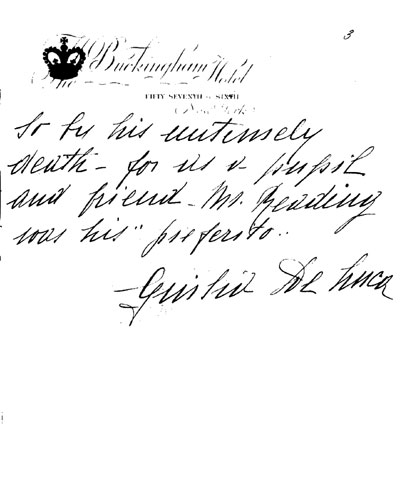 3
The Buckingham Hotel
FIFTY SEVENTH at SIXTH
New York
so by his untimely
death - for us a pupil
and friend - Mr. Reading
was his "preferito"
- Giulia De Luca